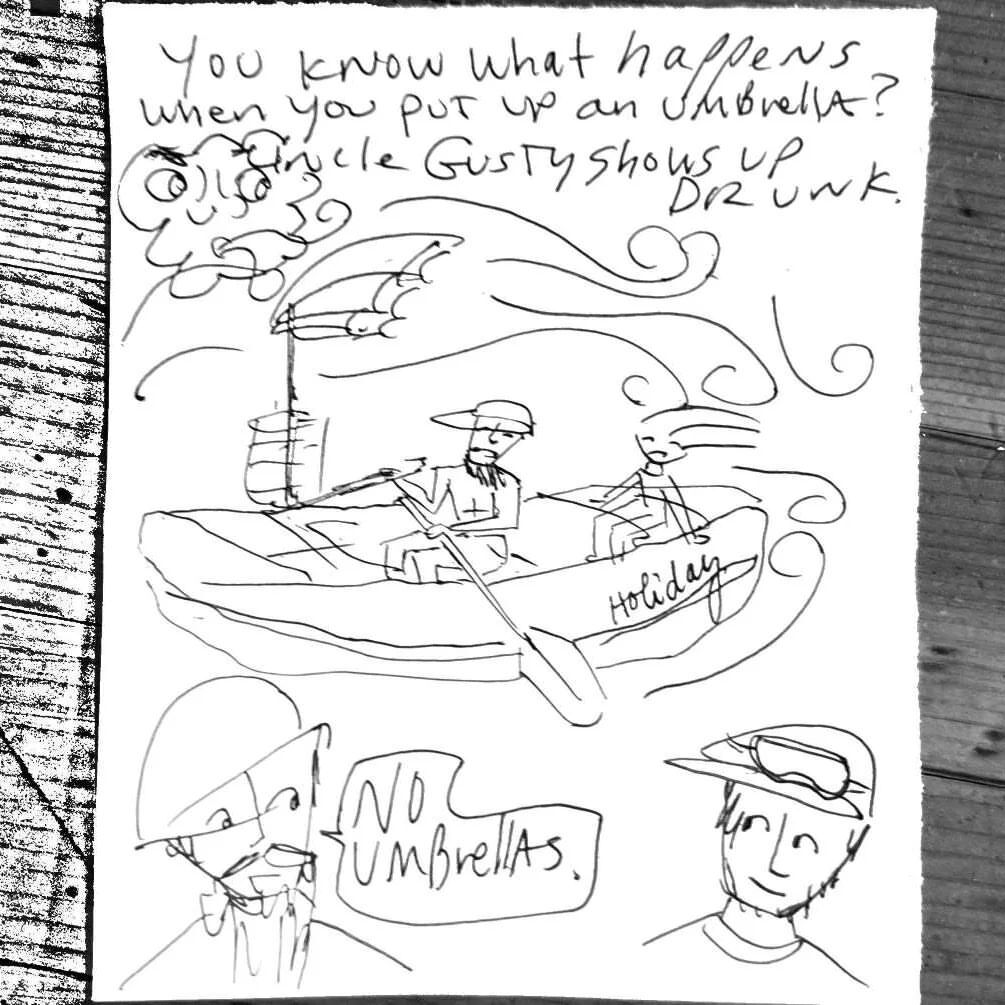 You know what happens
when you put up an umbrella?
Uncle Gusty shows up
DRUNK.
Holiday
NO
UMBrellAs.